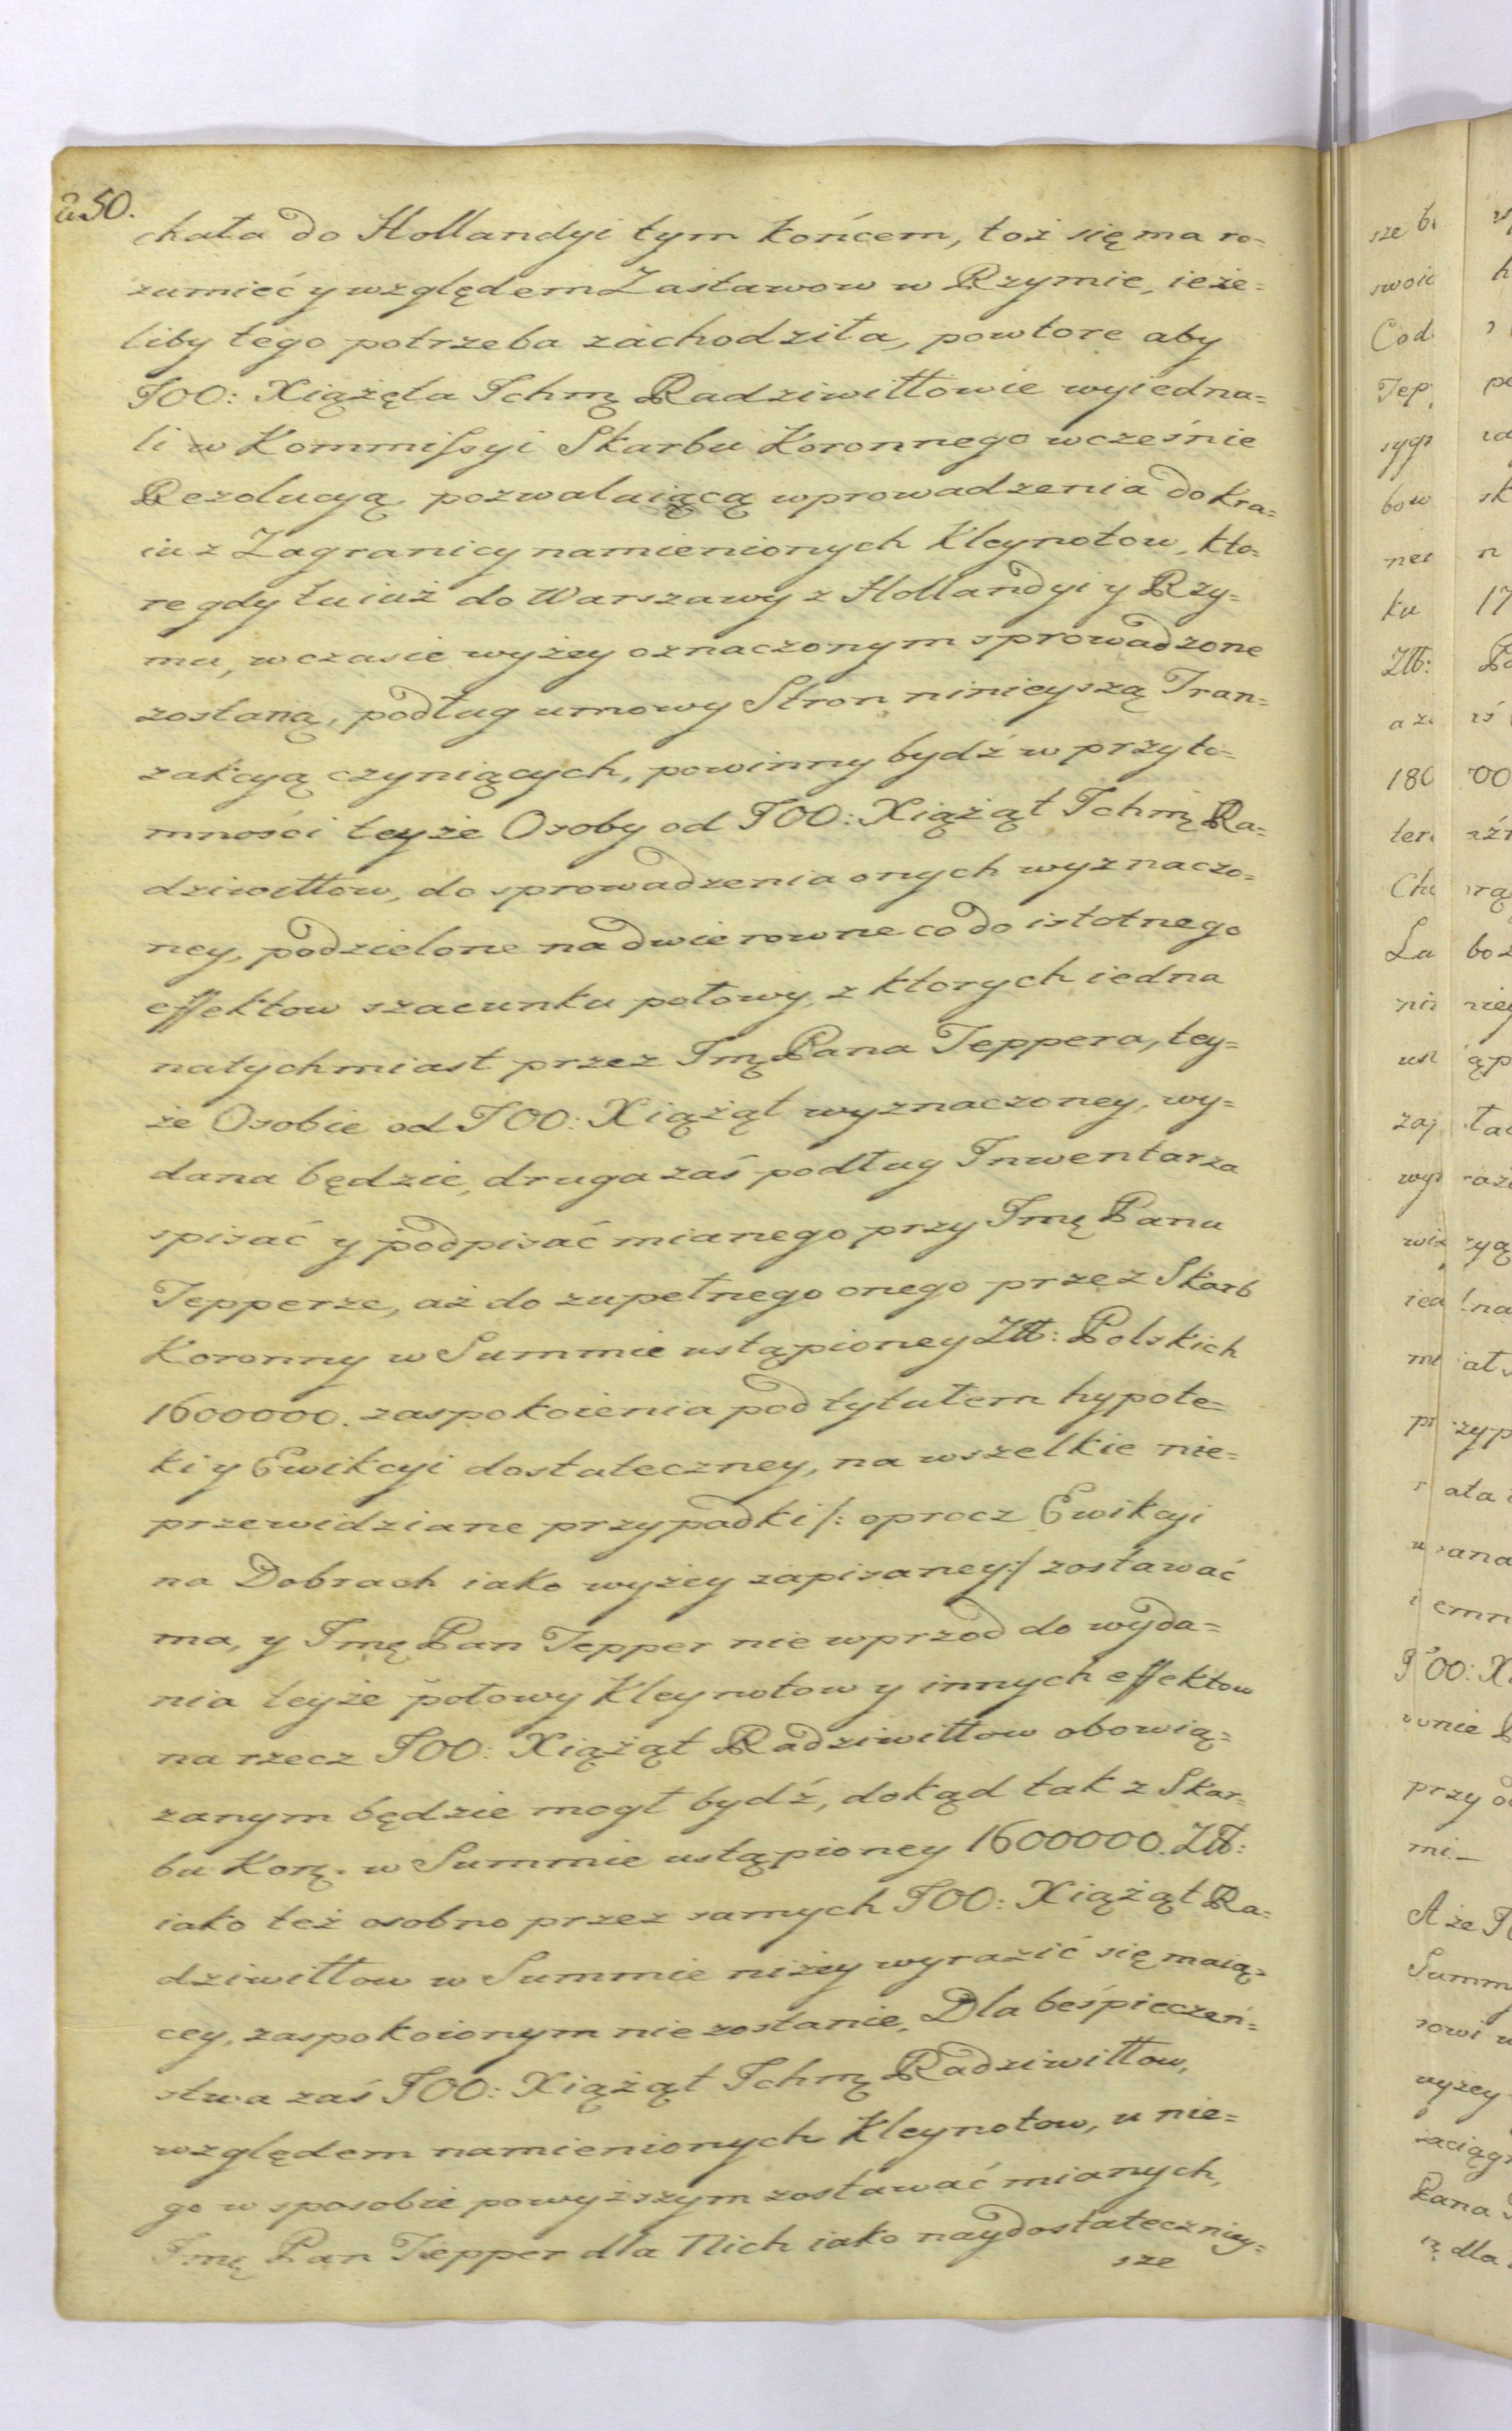 250.
chała do Hollandyi tym końcem, toż się ma ro=
zumieć y względem Zastawow w Rzymie, ieże=
liby tego potrzeba zachodziła, powtore aby
JOO: Xiążęta Ichmę Radziwiłłowie wyiedna=
li w Kommissyi Skarbu Koronnego wcześnie
Rezolucyą, pozwalaiącą wprowadzenia do Kra=
iu z Zagranicy namienionych Kleynotow, kto=
re gdy tu iuż do Warszawy z Hollandyi y Rzy=
mu, w czasie wyżey oznaczonym sprowadzone
zostaną, podług umowy Stron ninieyszą Tran=
zakcyą czyniących, powinny bydź w przyto=
mności teyże Osoby od JOO: Xiążąt Ichmę Ra=
dziwiłłow, do sprowadzenia onych wyznaczo=
ney, podzielone na dwie rowne co do istotnego
effektow szacunku połowy, z ktorych iedna
natychmiast przez Jmę Pana Teppera, tey=
że Osobie od JOO: Xiążąt wyznaczoney, wy=
dana będzie, druga zaś podług Inwentarza
spisać y podpisać mianego przy Jmę Panu
Tepperze, aż do zupełnego onego przez Skarb
Koronny w Summie ustąpioney Złł: Polskich
1600000. zaspokoienia pod tytułem hypote=
ki y Ewikcyi dostateczney, na wszelkie nie=
przewidziane przypadki /: oprocz Ewikcyi
na Dobrach iako wyżey zapisaney:/ zostawać
ma, y Jmę Pan Tepper nie wprzod do wyda=
nia teyże połowy Kleynotow y innych effektow
na rzecz JOO: Xiążąt Radziwiłłow obowią=
zanym będzie mogł bydź, dokąd tak z Skar=
bu Korę. w Summie ustąpioney 1600000. Złł:
iako też osobno przez samych JOO: Xiążąt Ra=
dziwiłłow w Summie niżey wyrazić się maią=
cey, zaspokoionym nie zostanie. Dla beśpieczeń=
stwa zaś JOO: Xiążąt Ichmę Radziwiłłow,
względem namienionych Kleynotow, u nie=
go w sposobie powyższym zostawać mianych,
Jmę Pan Tepper dla Nich iako naydostateczniey=
sze